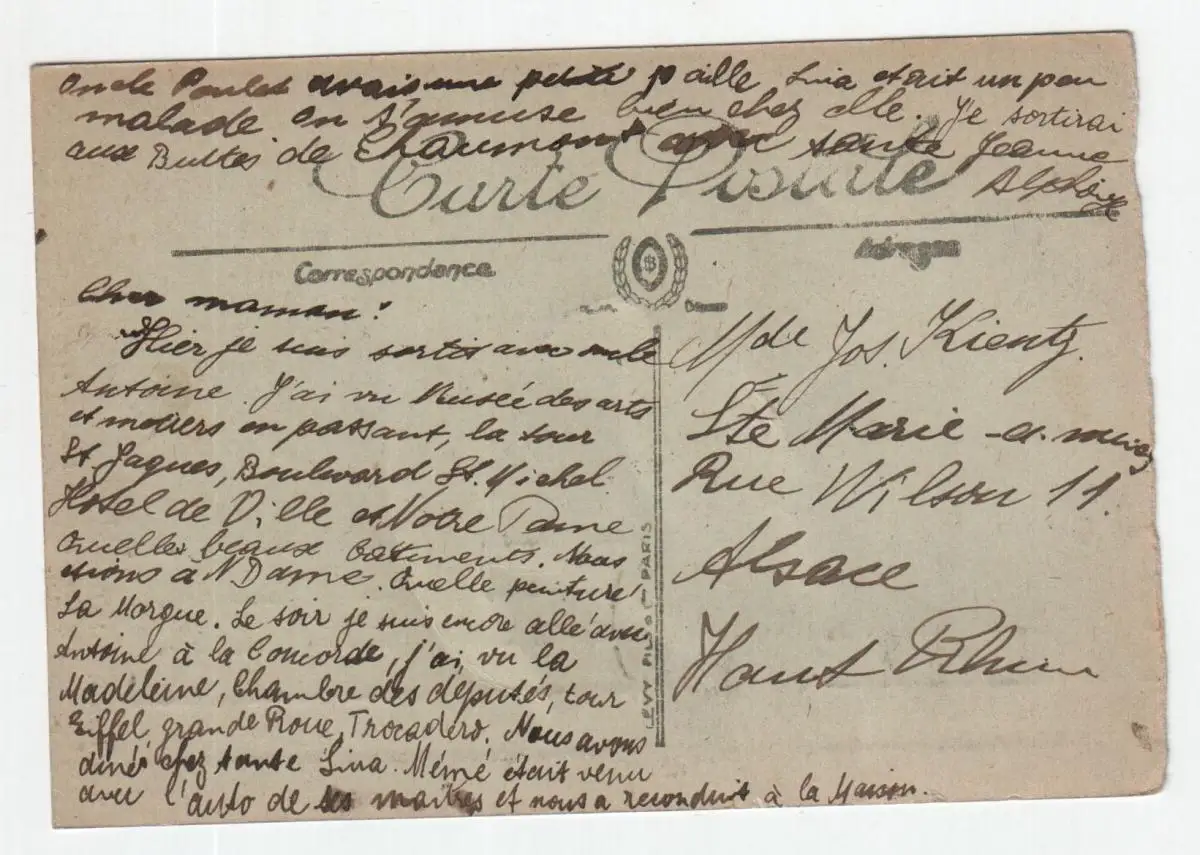 Oncle Paulet avais une petite paille Lina etait un peu
malade. On s'amuse bien chez elle. Je sortirai
aux Buttes de Chaumont avec tante Jeanne
Carte Postale
Correspondance
Adresse
Cher maman!
Hier je suis sortis avec oncle
Antoine. J'ai vu Musée des arts
et métiers en passant, la tour
St Jaques, Boulevard St. Michel.
Hotel de Ville et Notre Dame
Quelles beaux bâtiments. Nous
étions à N Dame. Quelle peinture!
La Morgue. Le soir je suis encore allé avec
Antoine à la Concorde, j'ai vu la
Madeleine, Chambre des députés, tour
Eiffel, grande Roue, Trocadero. Nous avons
diné chez tante Lina. Mémé était venu
avec l'auto de ses maitres et nous a reconduit à la Maison.
Mde Jos. Kientz.
Ste Marie-a-mines
Rue Wilson 11.
Alsace
Haut Rhin
LEVY FILS & Cie PARIS